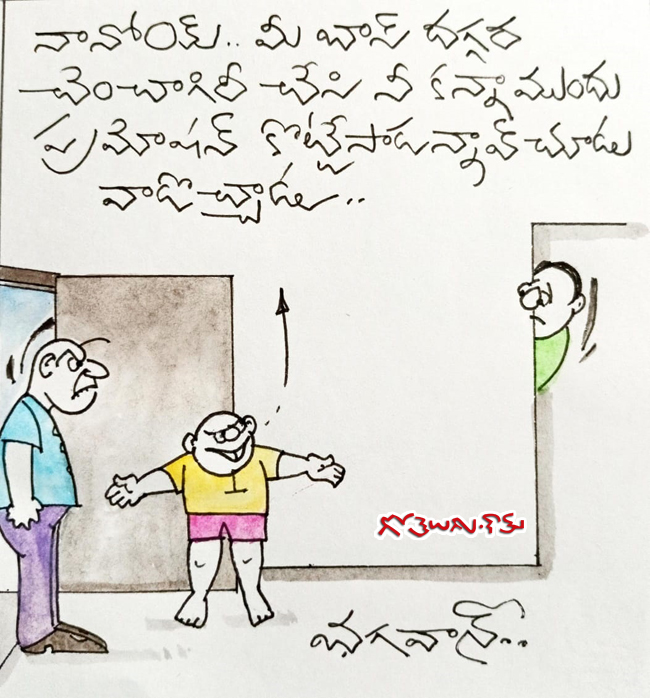 నాన్నోయ్.. మీ బాస్ దగ్గర
చెంచాగిరీ చేసి నీ కన్నా ముందు
ప్రమోషన్ కొట్టేసాడన్నావ్ చూడు
వాడొచ్చాడు..
గోతెలుగు.కామ్
భగవాన్..